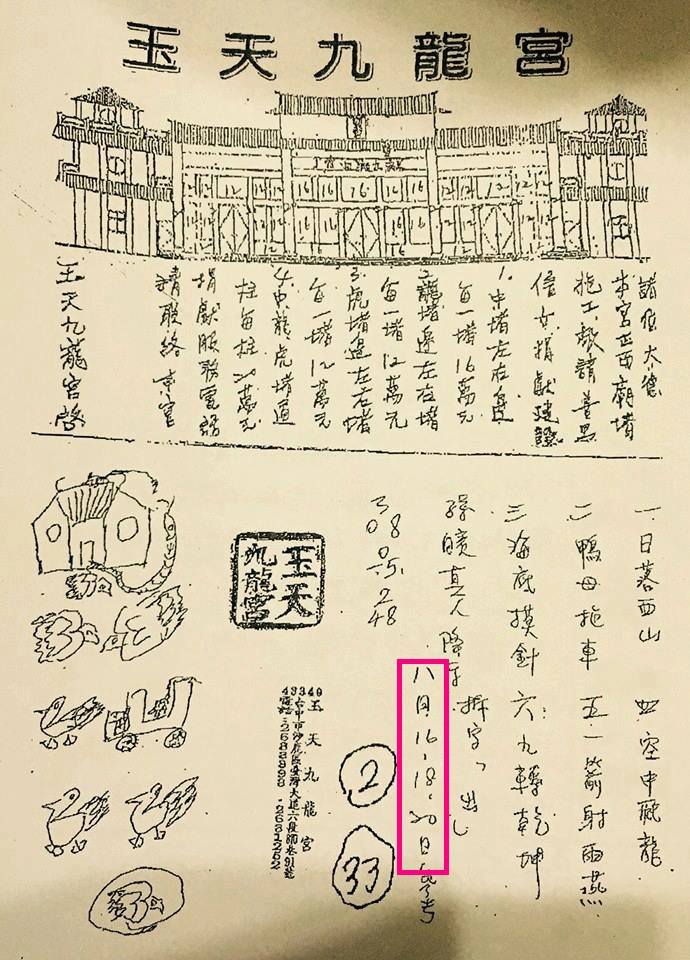 玉天九龍宮
諸位大德
本宮正西廟墻
施工敬請善男
信女捐獻建設
1.中堵左右邊
每一堵16萬元
2.龍堵邊左右堵
每一堵12萬元
3.虎堵邊左右堵
每一堵12萬元
4.中龍虎堵通
柱每柱20萬元
捐獻服務電話
請聯絡本宮
玉天九龍宮啓
一日落西山
四空中飛龍
二鴨母拖車
五一箭射雨燕
三海底摸針
六九轉乾坤
孫臏真人降
拆字
出
八月16.18.20日參考
308
05
248
玉天
九龍宮
43349
玉天九龍宮
台中市沙鹿區臺灣大道六段
2
33